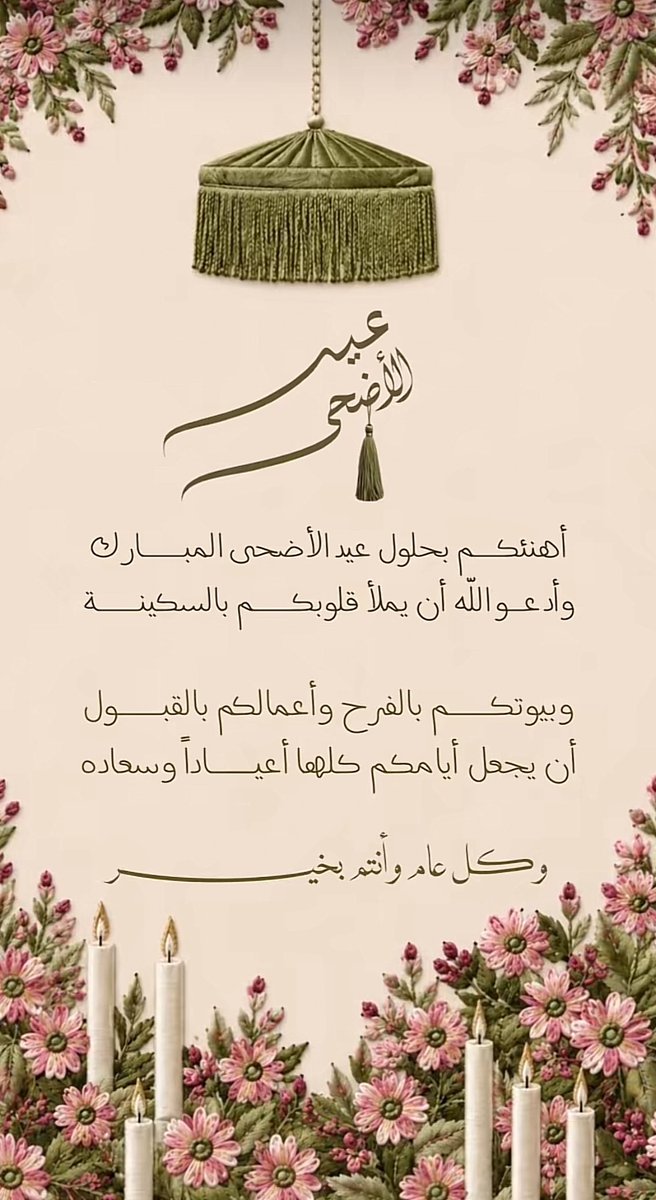 عيد
الأضحى
أهنئكم بحلول عيد الأضحى المبارك
وأدعو الله أن يملأ قلوبكم بالسكينة
وبيوتكم بالفرح وأعمالكم بالقبول
أن يجعل أيامكم كلها أعياداً وسعاده
وكل عام وأنتم بخير